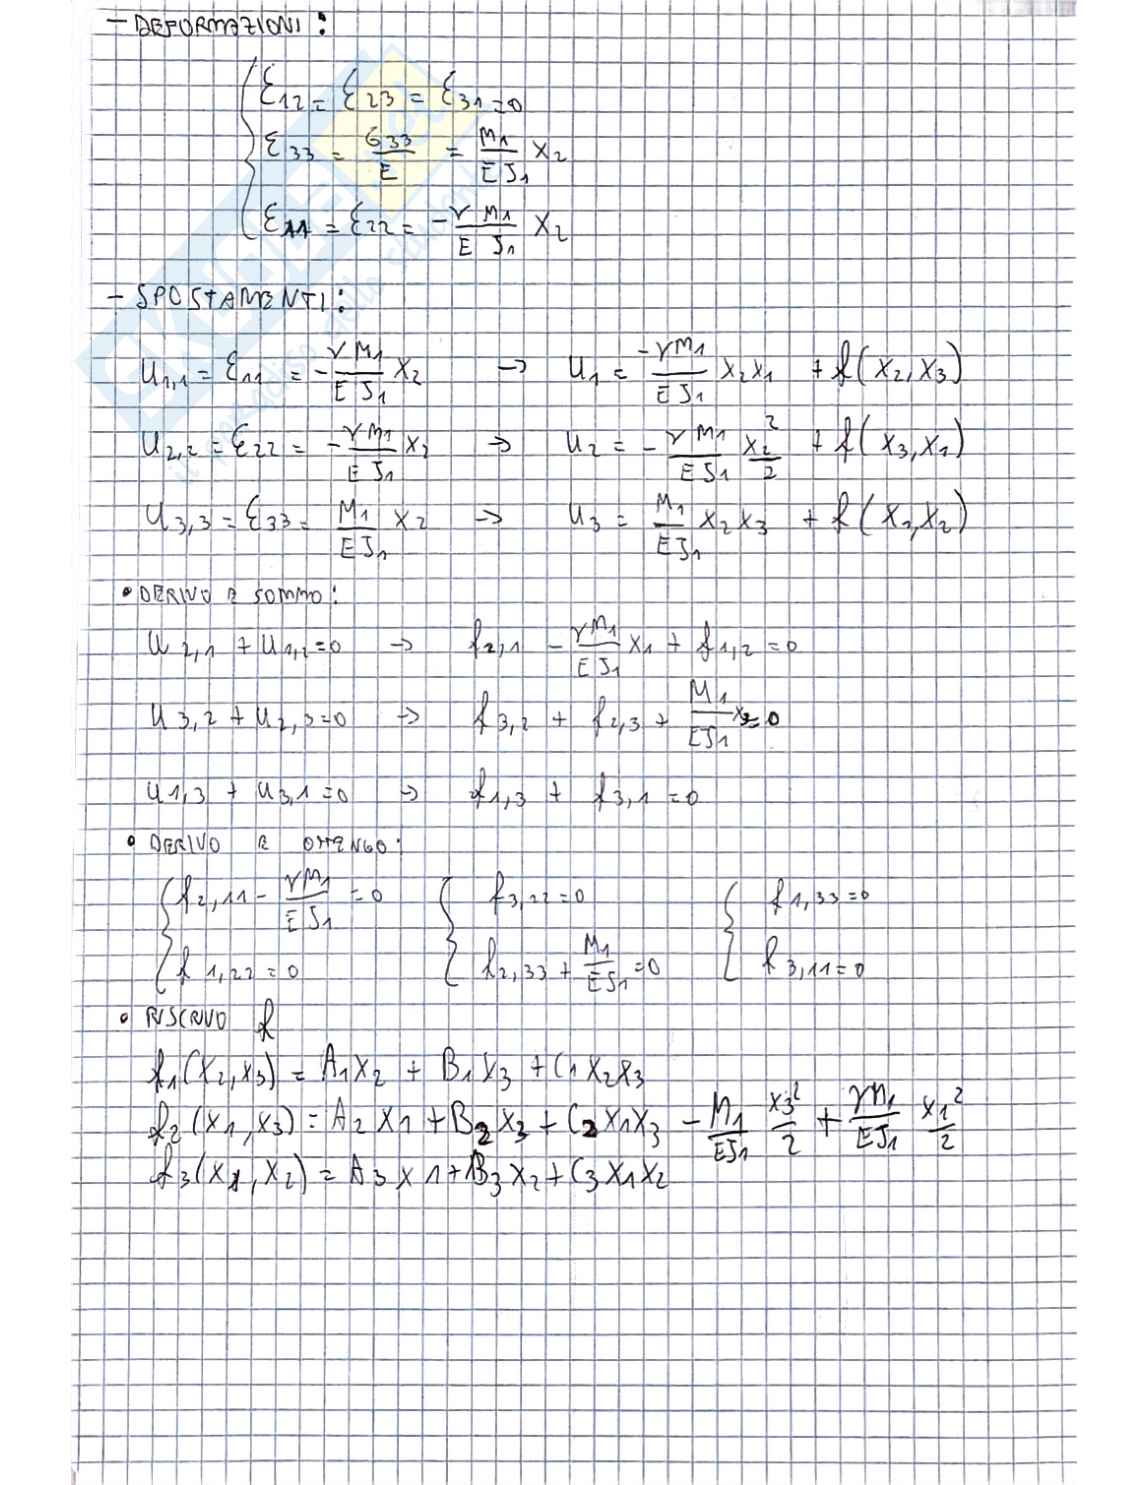 - DEFORMAZIONI:
ε12 = ε23 = ε31 = 0
ε33 = σ33/E = M1/EJ1 X2
ε11 = ε22 = - νM1/EJ1 X2
- SPOSTAMENTI:
u1,1 = ε11 = - νM1/EJ1 X2 → u1 = -νM1/EJ1 X2X1 + f(X2,X3)
u2,2 = ε22 = - νM1/EJ1 X2 → u2 = - νM1/EJ1 X2²/2 + f(X3,X1)
u3,3 = ε33 = M1/EJ1 X2 → u3 = M1/EJ1 X2X3 + f(X1,X2)
• DERIVO E SOMMO:
u2,1 + u1,2 = 0 → f2,1 - νM1/EJ1 X1 + f1,2 = 0
u3,2 + u2,3 = 0 → f3,2 + f2,3 + M1/EJ1 X3 = 0
u1,3 + u3,1 = 0 → f1,3 + f3,1 = 0
• DERIVO E OTTENGO:
f2,11 - νM1/EJ1 = 0 f3,22 = 0 f1,33 = 0
f1,22 = 0 f2,33 + M1/EJ1 = 0 f3,11 = 0
• RISCRIVO f
f1(X2,X3) = A1X2 + B1X3 + C1X2X3
f2(X1,X3) = A2X1 + B2X3 + C2X1X3 - M1/EJ1 X3²/2 + νM1/EJ1 X1²/2
f3(X1,X2) = A3X1 + B3X2 + C3X1X2